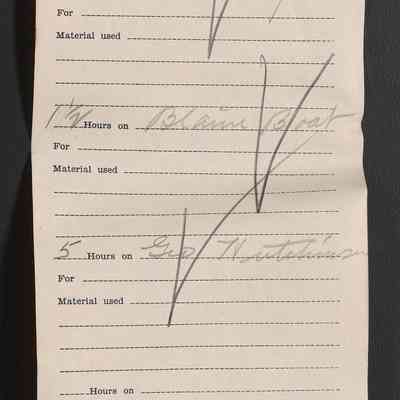 For
Material used
1 1/2 Hours on Blaine Boat
For
Material used
5 Hours on Geo Hutchinson
For
Material used
Hours on